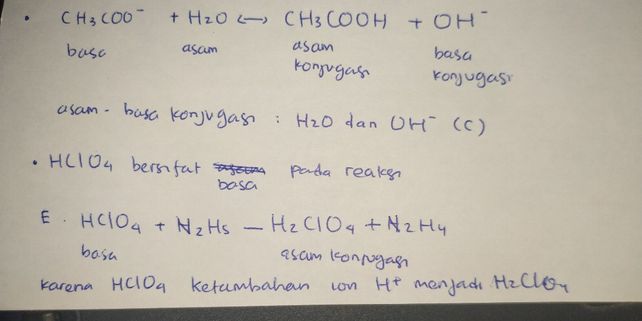 • CH3COO⁻ + H2O ⟷ CH3COOH + OH⁻
basa asam asam konjugasi basa konjugasi
asam - basa konjugasi : H2O dan OH⁻ (C)
• HClO4 bersifat asam basa pada reaksi
E. HClO4 + N2H5 — H2ClO4 + N2H4
basa asam konjugasi
karena HClO4 ketambahan ion H⁺ menjadi H2ClO4